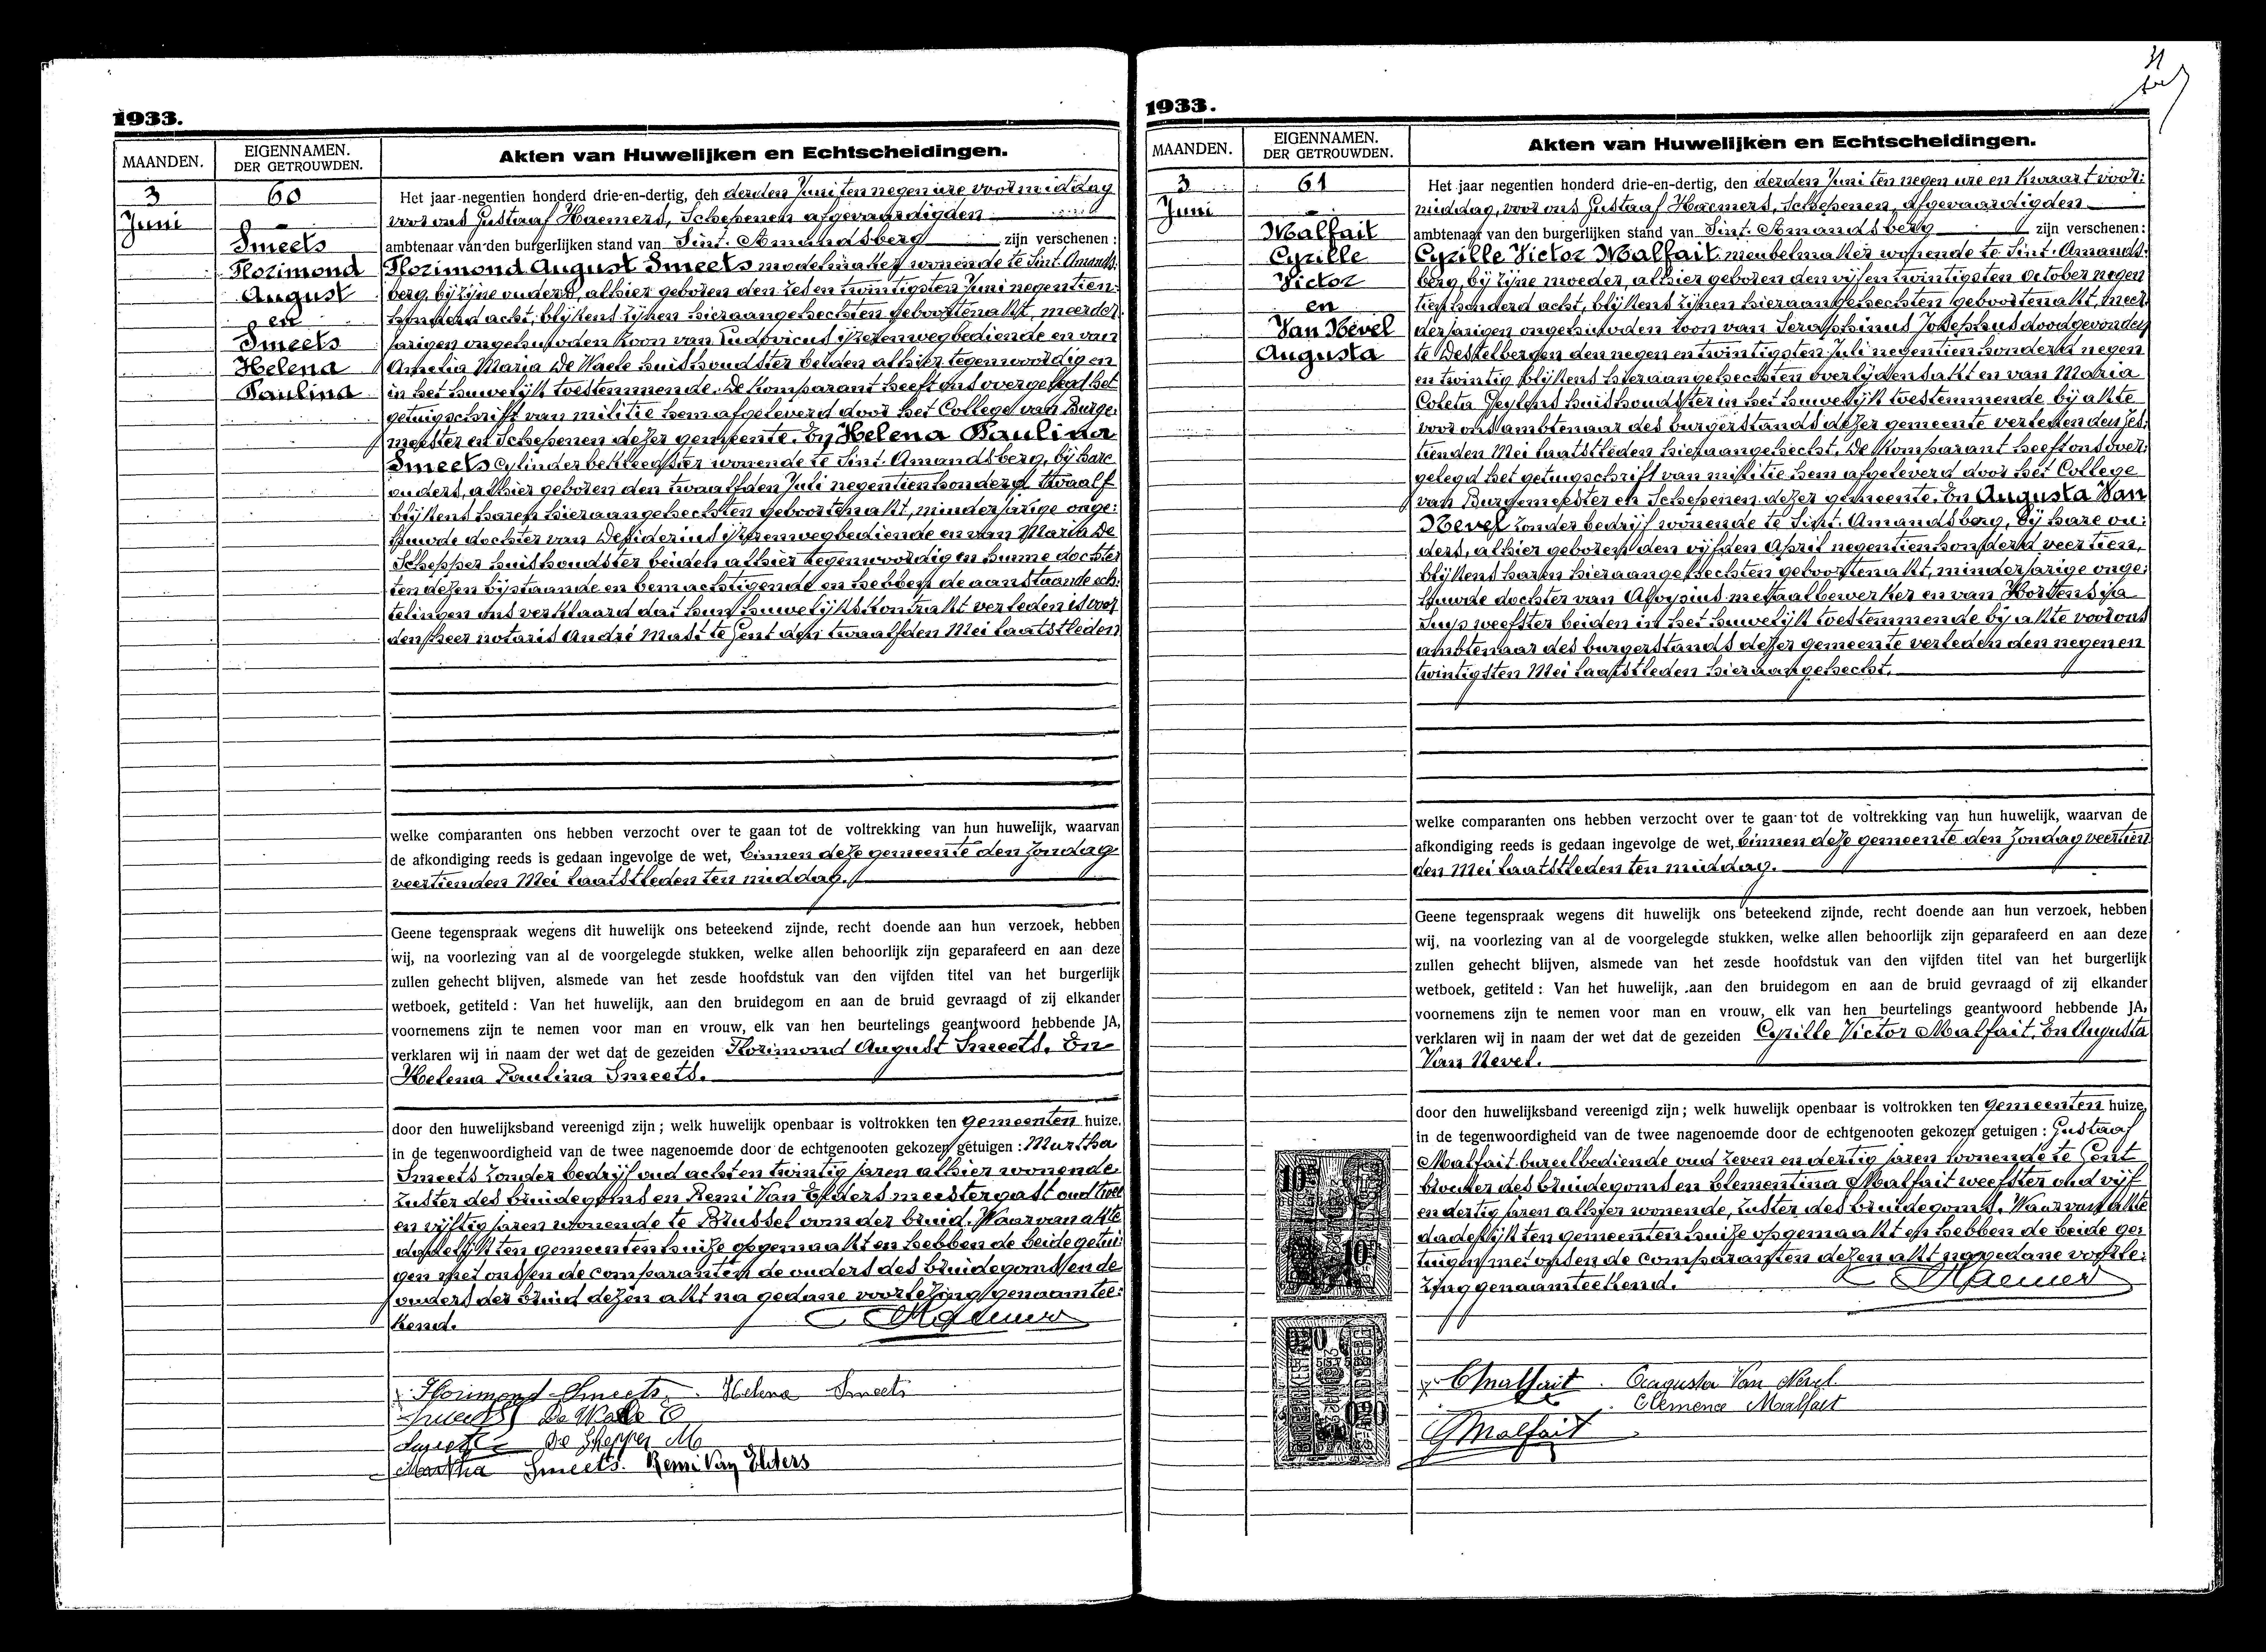 1933.
MAANDEN.
EIGENNAMEN.
DER GETROUWDEN.
Akten van Huwelijken en Echtscheidingen.
3
Juni
60
Smeets
Florimond
August
en
Smeets
Helena
Paulina
Het jaar negentien honderd drie-en-dertig, den derden Juni ten negen ure voormiddag
voor ons Gustaaf Haemers, Schepenen afgevaardigden
ambtenaar van den burgerlijken stand van Sint-Amandsberg zijn verschenen:
Florimond August Smeets modelmaker wonende te Sint-Amands:
berg, bij zijne ouders, alhier geboren den zes en twintigsten Juni negentien:
honderd acht, blijkens zijnen hieraangehechten geboortenakt, meerder:
jarigen ongehuwden zoon van Ludovicus ijzerenwegbediende en van
Amelia Maria De Waele huishoudster beiden alhier tegenwoordig en
in het huwelijk toestemmende. De komparant heeft ons overgelegd het
getuigschrift van militie hem afgeleverd door het College van Burge:
meester en Schepenen dezer gemeente. En Helena Paulina
Smeets cylinderbekleedster wonende te Sint-Amandsberg, bij hare
ouders, alhier geboren den twaalfden Juli negentienhonderd twaalf
blijkens haren hieraangehechten geboortenakt, minderjarige onge:
huwde dochter van Desiderius ijzerenwegbediende en van Maria De
Schepper huishoudster beiden alhier tegenwoordig en hunne dochter
ten dezen bijstaande en bemachtigende en hebben de aanstaande ech:
telingen ons verklaard dat hun huwelijkskontrakt verleden is voor
den heer notaris André Mast te Gent den twaalfden Mei laatstleden
welke comparanten ons hebben verzocht over te gaan tot de voltrekking van hun huwelijk, waarvan
de afkondiging reeds is gedaan ingevolge de wet, binnen deze gemeente den Zondag
veertienden Mei laatstleden ten middag.
Geene tegenspraak wegens dit huwelijk ons beteekend zijnde, recht doende aan hun verzoek, hebben
wij, na voorlezing van al de voorgelegde stukken, welke allen behoorlijk zijn geparafeerd en aan deze
zullen gehecht blijven, alsmede van het zesde hoofdstuk van den vijfden titel van het burgerlijk
wetboek, getiteld: Van het huwelijk, aan den bruidegom en aan de bruid gevraagd of zij elkander
voornemens zijn te nemen voor man en vrouw, elk van hen beurtelings geantwoord hebbende JA,
verklaren wij in naam der wet dat de gezeiden Florimond August Smeets. En
Helena Paulina Smeets.
door den huwelijksband vereenigd zijn; welk huwelijk openbaar is voltrokken ten gemeenten huize.
in de tegenwoordigheid van de twee nagenoemde door de echtgenooten gekozen getuigen: Martha
Smeets zonder bedrijf oud acht en twintig jaren alhier wonende.
Zuster des bruidegoms en Remi Van Elders meestergast oud twee
en vijftig jaren wonende te Brussel oom der bruid. Waarvan akte
dadelijk ten gemeentenhuize opgemaakt en hebben de beide getui:
gen met ons en de comparanten de ouders des bruidegoms en de
ouders der bruid dezen akt na gedane voorlezing genaamtee:
kend.
Haemers
Florimond Smeets. Helena Smeets
Smeets De Waele
Smeets De Shepper M
Martha Smeets. Remi Van Elders
1933.
MAANDEN.
EIGENNAMEN.
DER GETROUWDEN.
Akten van Huwelijken en Echtscheidingen.
3
Juni
61
Malfait
Cyrille
Victor
en
Van Nevel
Augusta
Het jaar negentien honderd drie-en-dertig, den derden Juni ten negen ure en kwaart voor:
middag, voor ons Gustaaf Haemers, Schepenen, afgevaardigden
ambtenaar van den burgerlijken stand van Sint-Amandsberg zijn verschenen:
Cyrille Victor Malfait. meubelmaker wonende te Sint-Amands:
berg, bij zijne moeder, alhier geboren den vijfen twintigsten October negen
tienhonderd acht, blijkens zijnen hieraangehechten geboortenakt, meer:
derjarigen ongehuwden zoon van Seraphinus Josephus doodgevonden
te Destelbergen den negen en twintigsten Juli negentienhonderd negen
en twintig blijkens hieraangehechten overlijdensakt en van Maria
Coleta Geylens huishoudster in het huwelijk toestemmende bij akte
voor ons ambtenaar des burgerstands dezer gemeente verleden den zes:
tienden Mei laatstleden hieraangehecht. De komparant heeft ons over:
gelegd het getuigschrift van militie hem afgeleverd door het College
van Burgemeester en Schepenen dezer gemeente. En Augusta Van
Nevel zonder bedrijf wonende te Sint-Amandsberg, bij hare ou:
ders, alhier geboren den vijfden April negentienhonderd veertien,
blijkens haren hieraangehechten geboortenakt, minderjarige onge:
huwde dochter van Aloysius metaalbewerker en van Hortensia
Suys weefster beiden in het huwelijk toestemmende bij akte voor ons
ambtenaar des burgerstands dezer gemeente verleden den negen en
twintigsten Mei laatstleden hieraangehecht.
welke comparanten ons hebben verzocht over te gaan tot de voltrekking van hun huwelijk, waarvan de
afkondiging reeds is gedaan ingevolge de wet, binnen deze gemeente den Zondag veertien
den Mei laatstleden ten middag.
Geene tegenspraak wegens dit huwelijk ons beteekend zijnde, recht doende aan hun verzoek, hebben
wij, na voorlezing van al de voorgelegde stukken, welke allen behoorlijk zijn geparafeerd en aan deze
zullen gehecht blijven, alsmede van het zesde hoofdstuk van den vijfden titel van het burgerlijk
wetboek, getiteld: Van het huwelijk, aan den bruidegom en aan de bruid gevraagd of zij elkander
voornemens zijn te nemen voor man en vrouw, elk van hen beurtelings geantwoord hebbende JA,
verklaren wij in naam der wet dat de gezeiden Cyrille Victor Malfait. En Augusta
Van Nevel.
door den huwelijksband vereenigd zijn; welk huwelijk openbaar is voltrokken ten gemeenten huize,
in de tegenwoordigheid van de twee nagenoemde door de echtgenooten gekozen getuigen: Gustaaf
Malfait bureelbediende oud zeven en dertig jaren wonende te Gent
broeder des bruidegoms en Clementina Malfait weefster oud vijf
en dertig jaren alhier wonende, zuster des bruidegoms. Waarvan akte
dadelijk ten gemeentenhuize opgemaakt en hebben de beide ge:
tuigen met ons en de comparanten dezen akt na gedane voorle:
zing genaamteekend.
Haemers
CMalfait. Augusta Van Nevel.
Clemence Malfait
GMalfait